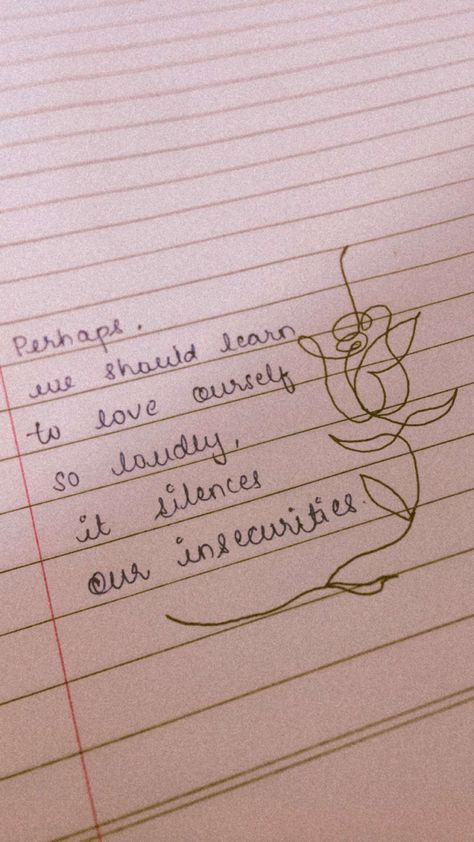 Perhaps.
we should learn
to love ourself
so loudly,
it silences
our insecurities.